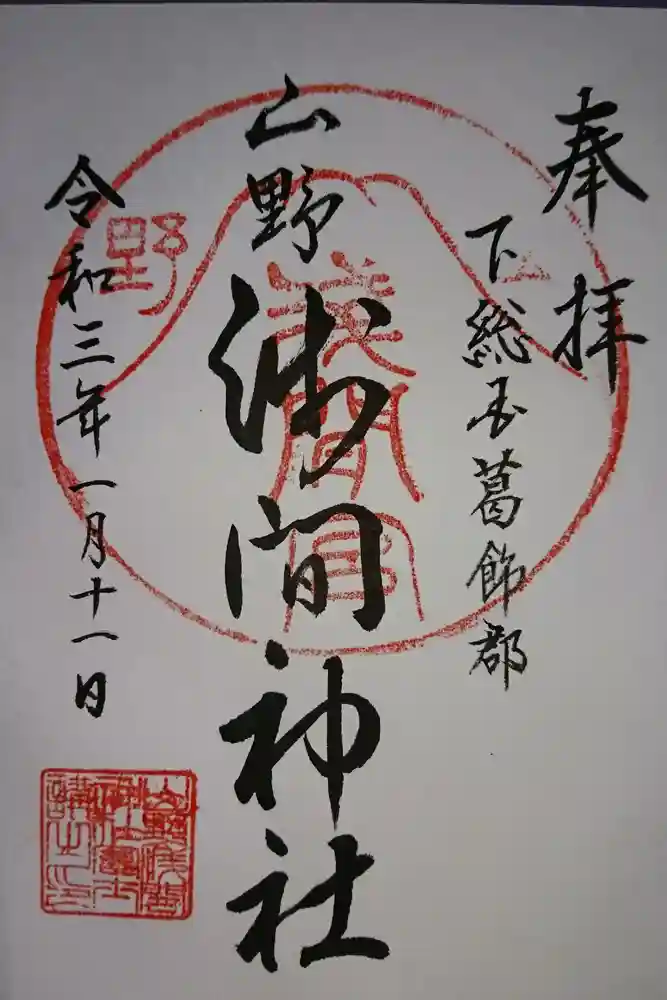 奉拝
下総国葛飾郡
山野浅間神社
令和三年一月十一日
山
野
浅間宮